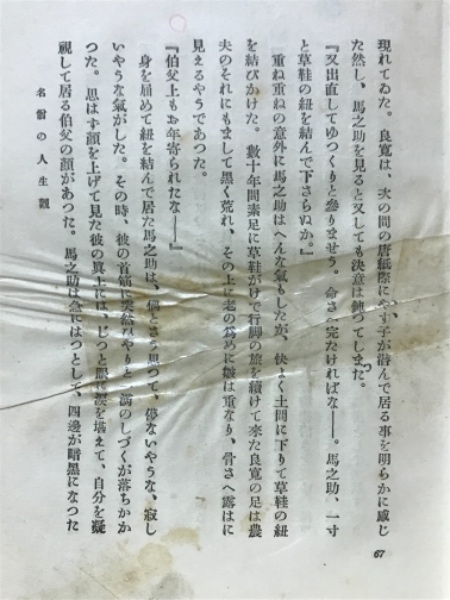 現れてゐた。良寛は、次の間の唐紙際にやす子が潜んで居る事を明らかに感じ
た然し、馬之助を見ると又しても決意は鈍つてしまつた。
『又出直してゆつくりと參りませう。命さへ完たければな――。馬之助、一寸
と草鞋の紐を結んで下さらぬか。』
重ね重ねの意外に馬之助はへんな氣もしたが、快よく土間に下りて草鞋の紐
を結びかけた。數十年間素足に草鞋がけで行脚の旅を續けて來た良寛の足は農
夫のそれにもまして黒く荒れ、その上に老の爲めに皺は重なり、骨さへ露はに
見えるやうであつた。
『伯父上もお年寄られたな――』
身を屈めて紐を結んで居た馬之助は、偶とさう思つて、儚ないやうな、寂し
いやうな氣がした。その時、彼の首筋に突然ひやりと一滴のしづくが落ちかか
つた。思はず顔を上げて見た彼の眞上には、じつと眼に涙を堪えて、自分を凝
視して居る伯父の顔があつた。馬之助は急にはつとして、四邊が暗黒になつた
名僧の人生觀
67